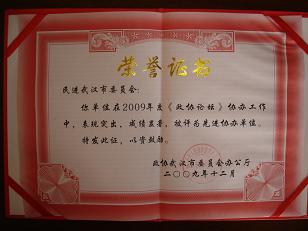 荣誉证书
民进武汉市委员会:
你单位在2009年度《政协论坛》协办工作
中,表现突出,成绩显著,被评为先进协办单位。
特发此证,以资鼓励。
政协武汉市委员会办公厅
二〇〇九年十二月